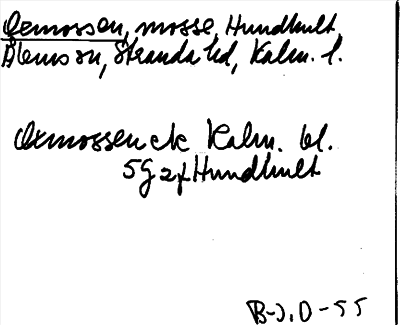 Oxmossen, mosse, Hundhult,
Ålems sn, Stranda hd, Kalm. l.
Oxmossen ek Kalm. bl.
5G 2f Hundhult
B-J. O-55